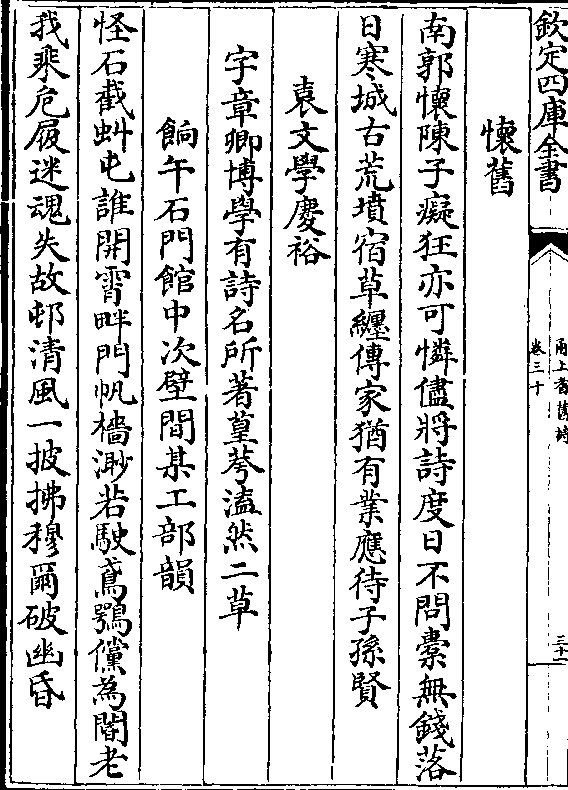 欽定四庫全書
甬上耆舊詩
卷三十
三十一
懷舊
南郭懷陳子癡狂亦可憐儘將詩度日不問橐無錢落
日寒城古荒墳宿草纏傳家猶有業應待子孫賢
袁文學慶裕
字章卿博學有詩名所著蓂荂溘然二草
餉午石門館中次壁間某工部韻
怪石截虯屯誰開霄畔門帆檣渺若駛鳶鶚儻為閽老
我乘危屐迷魂失故邨清風一披拂穆爾破幽昏